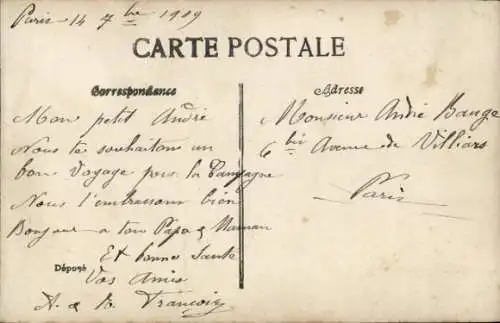 Paris 14 7bre 1909
CARTE POSTALE
Correspondance
Mon petit André
Nous te souhaitons un
bon voyage pour la Campagne
Nous t'embrassons bien
Bonjour a ton Papa & Maman
Et bonne Santé
Vos Amis
A. & B. François
Déposé
Adresse
Monsieur André Bauge
6bis Avenue de Villiars
Paris